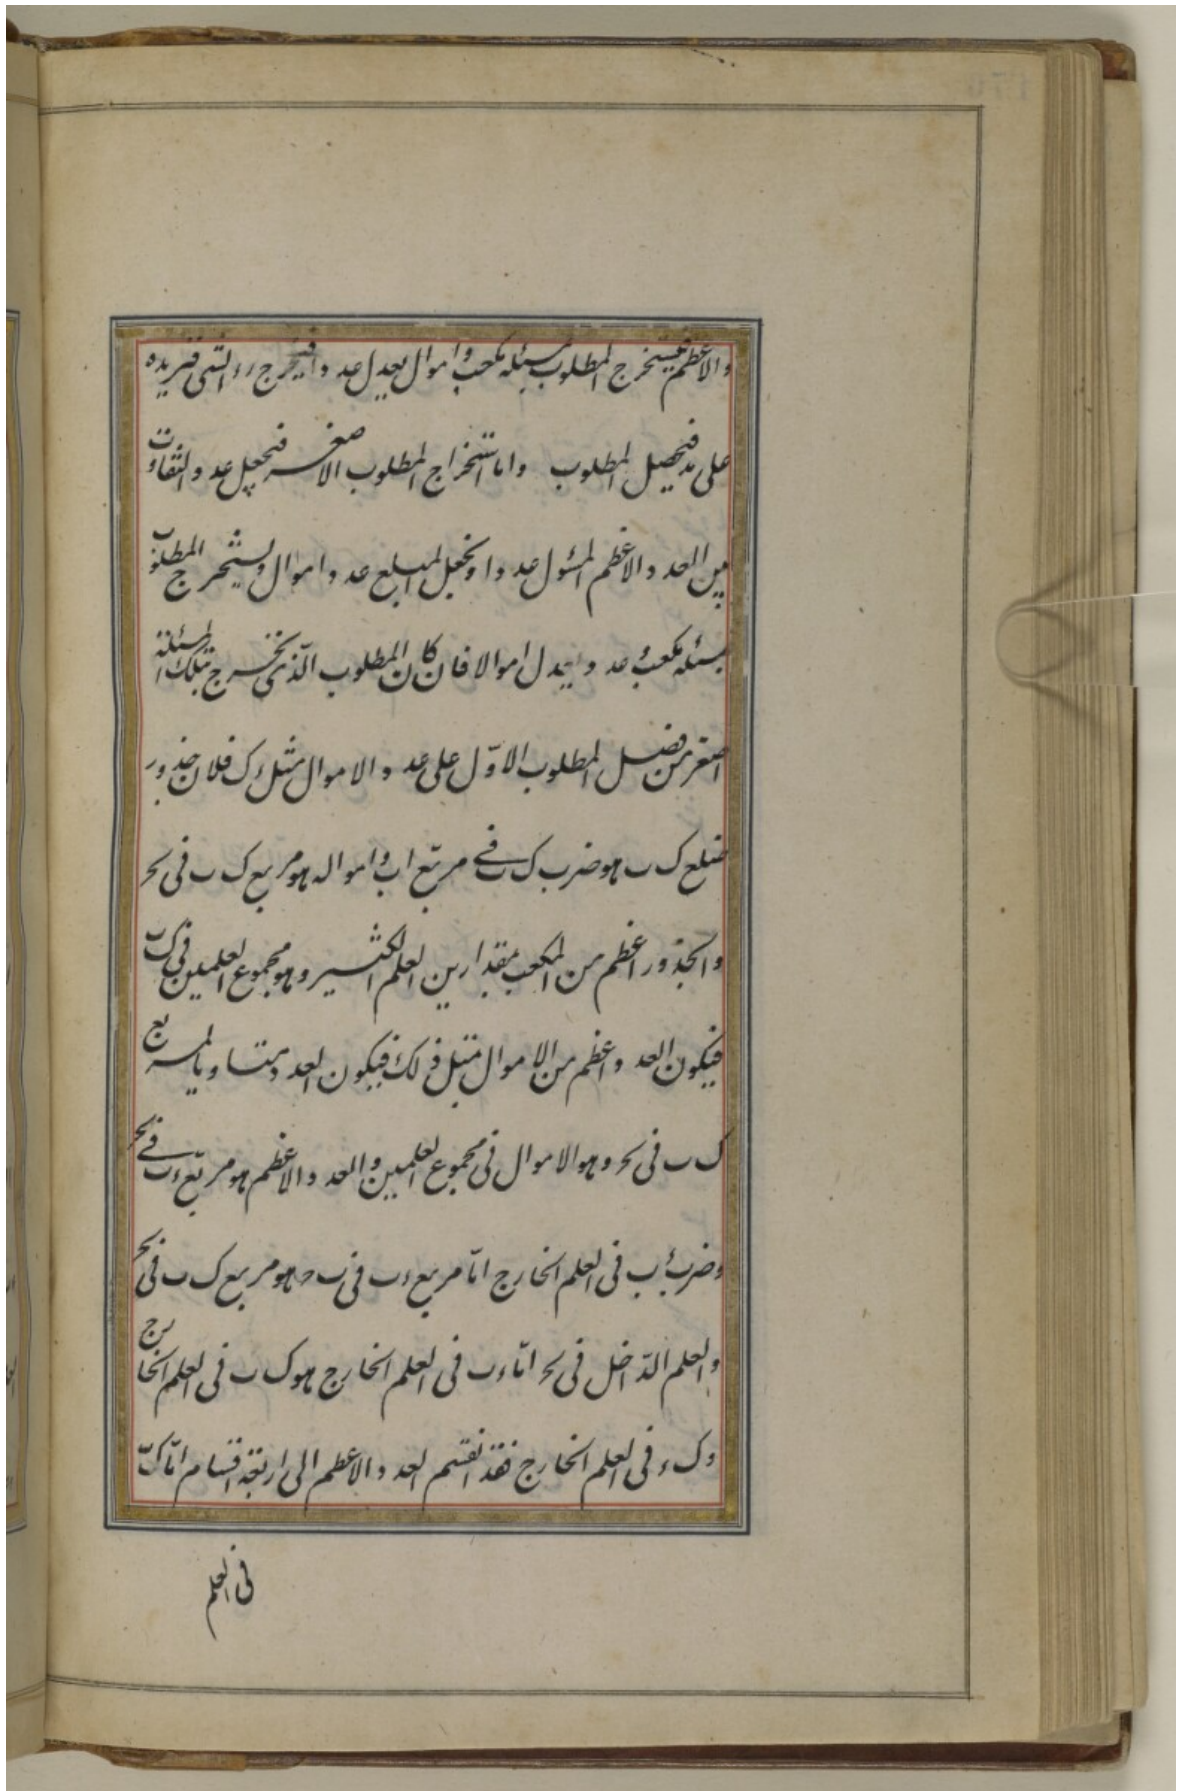 والاعظم فيستخرج المطلوب بمسئلة مكعب واموال يعدل عددا فيخرج رء الشى فنزيده
على مد فيحصل المطلوب واما استخراج المطلوب الاصغر فنجعل عدد التفاوت
بين العدد الاعظم المسئول عددا ونجعل المبلغ عدد اموال ويستخرج المطلوب
بمسئلة مكعب وعدد يعدل اموالا فان كان المطلوب الذى يخرج بتلك المسئلة
اصغر من فضل المطلوب الاول على عدد الاموال مثل ءك فلان جذور
ضلع ك ب هو ضرب ك ب فى مربع اب وامواله هو مربع ك ب فى بحـ
والجذور اعظم من المكعب بمقدارين العلم الكثير وهو مجموع العلمين فى ك ب
فيكون العدد اعظم من الاموال مثل ذلك فيكون العدد متساويا لمربع
ك ب فى بحـ وهو الاموال فى مجموع العلمين والعدد الاعظم هو مربع ءب فى بحـ
وضرب ءب فى العلم الخارج اما مربع ءب فى ب حـ هو مربع ك ب فى بحـ
والعلم الداخل فى بحـ اما ءب فى العلم الخارج هو ك ب فى العلم الخارج
وك ء فى العلم الخارج فقد انقسم العدد الاعظم الى اربعة اقسام اما ك ب
فى العلم